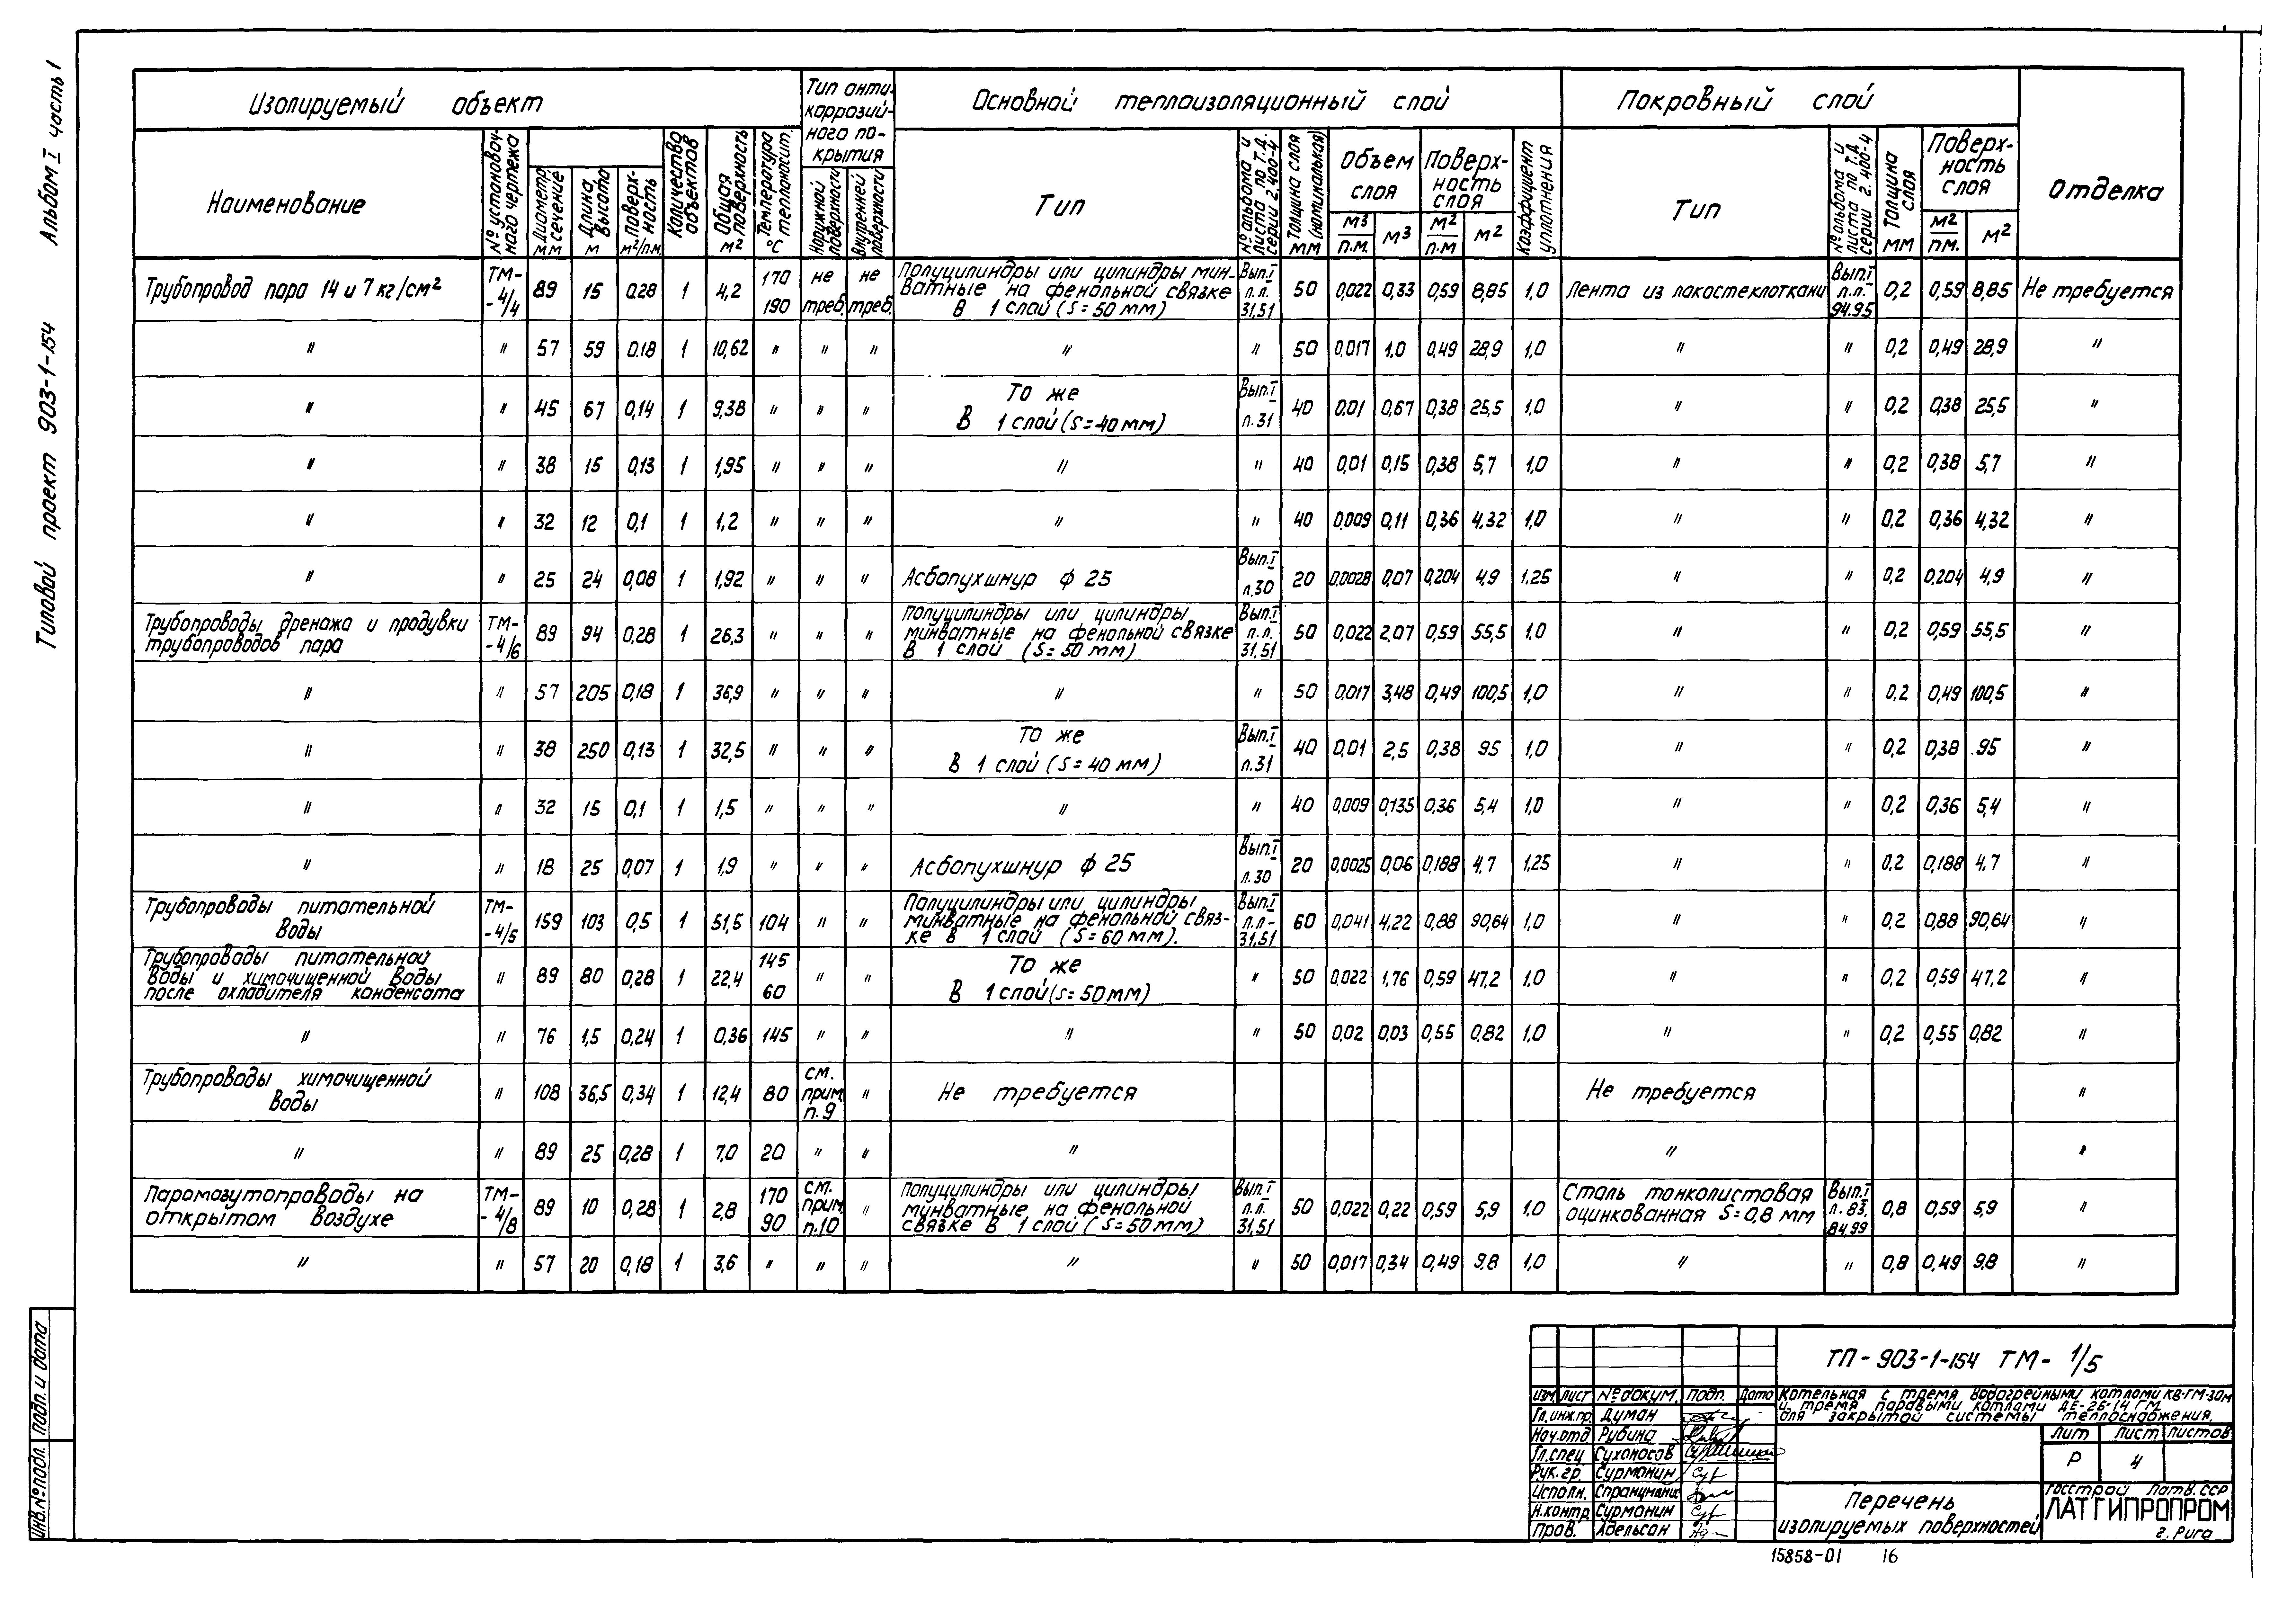 Альбом I часть 1
Типовой проект 903-1-154
Изолируемый объект
Тип анти-
коррозий-
ного по-
крытия
Основной теплоизоляционный слой
Покровный слой
Отделка
Наименование
№ установоч-
ного чертежа
Диаметр, сечение мм
Длина, высота м
Поверх-
ность м²/п.м.
Количество объектов
Общая поверхность м²
Температура теплоносит. °С
Наружной поверхности
Внутренней поверхности
Тип
№ альбома и листа по Т.Д. серии 2.400-4
Толщина слоя (номинальная) мм
Объем слоя
м³/п.м. м³
Поверх-
ность слоя
м²/п.м м²
Коэффициент уплотнения
Тип
№ альбома и листа по Т.Д. серии 2.400-4
Толщина слоя мм
Поверх-
ность слоя
м²/п.м. м²
Трубопровод пара 14 и 7 кг/см² ТМ-4/4 89 15 0.28 1 4,2 170 190 не треб. не треб. Полуцилиндры или цилиндры мин-
ватные на фенольной связке
в 1 слой (S=50мм) Вып.I л.л. 31,51 50 0,022 0,33 0,59 8,85 1,0 Лента из лакостеклоткани Вып.I л.л. 94.95 0,2 0,59 8,85 Не требуется
" " 57 59 0.18 1 10,62 " " " " " 50 0,017 1.0 0,49 28,9 1,0 " " 0,2 0,49 28,9 "
" " 45 67 0,14 1 9,38 " " " То же
в 1 слой (S=40мм) Вып.I л.31 40 0,01 0,67 0,38 25,5 1,0 " " 0,2 0,38 25,5 "
" " 38 15 0,13 1 1,95 " " " " " 40 0,01 0,15 0,38 5,7 1,0 " " 0,2 0,38 5,7 "
" " 32 12 0,1 1 1,2 " " " " " 40 0,009 0,11 0,36 4,32 1,0 " " 0,2 0,36 4,32 "
" " 25 24 0,08 1 1,92 " " " Асбопухшнур ф 25 Вып.I л.30 20 0,0028 0,07 0,204 4,9 1,25 " " 0,2 0,204 4,9 "
Трубопроводы дренажа и продувки
трубопроводов пара ТМ-4/6 89 94 0,28 1 26,3 " " " Полуцилиндры или цилиндры
минватные на фенольной связке
в 1 слой (S=50мм) Вып.I л.л. 31,51 50 0,022 2,07 0,59 55,5 1,0 " " 0,2 0,59 55,5 "
" " 57 205 0,18 1 36,9 " " " " " 50 0,017 3,48 0,49 100,5 1,0 " " 0,2 0,49 100,5 "
" " 38 250 0,13 1 32,5 " " " То же
в 1 слой (S=40мм) Вып.I л.31 40 0,01 2,5 0,38 95 1,0 " " 0,2 0,38 95 "
" " 32 15 0,1 1 1,5 " " " " " 40 0,009 0,135 0,36 5,4 1,0 " " 0,2 0,36 5,4 "
" " 18 25 0,07 1 1,9 " " " Асбопухшнур ф 25 Вып.I л.30 20 0,0025 0,06 0,188 4,7 1,25 " " 0,2 0,188 4,7 "
Трубопроводы питательной
воды ТМ-4/5 159 103 0,5 1 51,5 104 " " Полуцилиндры или цилиндры
минватные на фенольной связ-
ке в 1 слой (S=60мм). Вып.I л.л- 31,51 60 0,041 4,22 0,88 90,64 1,0 " " 0,2 0,88 90,64 "
Трубопроводы питательной
воды и химочищенной воды
после охладителя конденсата " 89 80 0,28 1 22,4 145 60 " " То же
в 1 слой (S=50мм) " 50 0,022 1,76 0,59 47,2 1,0 " " 0,2 0,59 47,2 "
" " 76 1,5 0,24 1 0,36 145 " " " " 50 0,02 0,03 0,55 0,82 1,0 " " 0,2 0,55 0,82 "
Трубопроводы химочищенной
воды " 108 36,5 0,34 1 12,4 80 см. прим. п.9 " Не требуется Не требуется "
" " 89 25 0,28 1 7,0 20 " " " " "
Паромазутопроводы на
открытом воздухе ТМ-4/8 89 10 0,28 1 2,8 170 90 см. прим. п.10 " Полуцилиндры или цилиндры
минватные на фенольной
связке в 1 слой (S=50мм) Вып.I л.л. 31,51 50 0,022 0,22 0,59 5,9 1,0 Сталь тонколистовая
оцинкованная S=0,8 мм Вып.I л.83, 84.99 0,8 0,59 5,9 "
" " 57 20 0,18 1 3,6 " " " " " 50 0,017 0,34 0,49 9.8 1,0 " " 0,8 0,49 9.8 "
Подп. и дата
Инв.№ подл.
ТП-903-1-154 ТМ-1/5
Изм. Лист № докум. Подп. Дата
Котельная с тремя водогрейными котлами КВ-ГМ-30м
и тремя паровыми котлами ДЕ-25-14ГМ
для закрытой системы теплоснабжения.
Гл.инж.пр. Думан
Нач.отд Рубина
Гл.спец Сухоносов
Рук.гр. Сурманин
Исполн.
Н.контр. Сурманин
Пров. Адельсон
Лит Лист Листов
Р 4
Перечень
изолируемых поверхностей
Госстрой Латв.ССР
ЛАТГИПРОПРОМ
г.Рига
15858-01 16